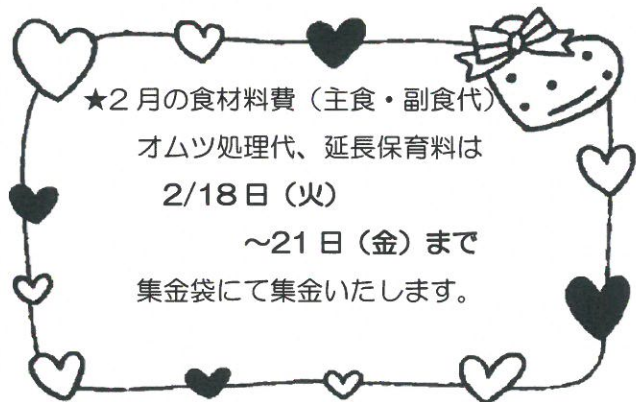 ★2月の食材料費（主食・副食代）
オムツ処理代、延長保育料は
2/18日（火）
～21日（金）まで
集金袋にて集金いたします。